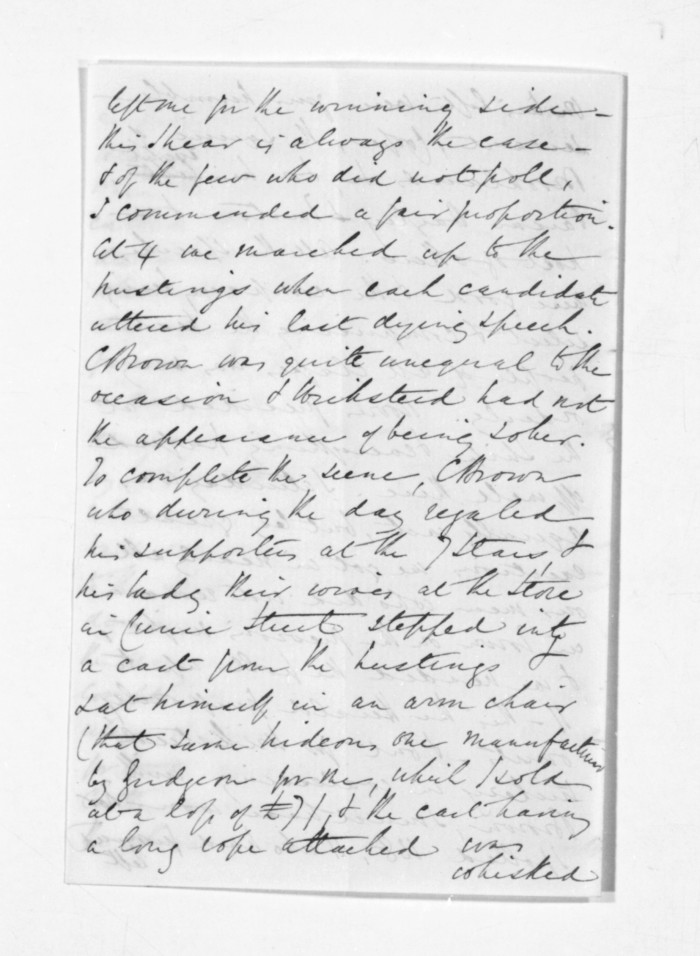 left me for the winning side –
this I hear is always the case –
& of the few who did not poll,
I commanded a fair proportion.
At 4 we marched up to the
hustings when each candidate
uttered his last dying speech.
C Brown was quite unequal to the
occasion & Wicksteed had not
the appearance of being sober.
To complete the scene, C Brown
who during the day regaled
his supporters at the 7 Stars, &
his lady their wives at the store
in Currie Street stepped into
a cart from the hustings &
sat himself in an arm chair
(that same hideous one manufactured
by Gudgeon for me, which I sold
at a loss of £7/, & the cart having
a long rope attached was
whisked